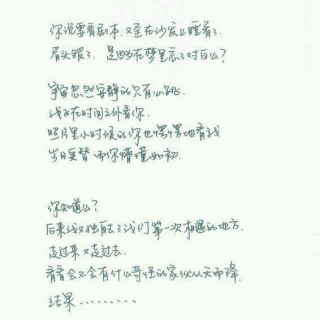 你说要看剧本，又歪在沙发上睡着了。
眉头皱了，是因为在梦里忘了对白么？
宇宙忽然安静的只有心跳。
我又在时间之外看你。
照片里小时候的你也懵懵地看我
岁月更替 而你懵懂如初
你知道么？
后来我又独自去了我们第一次相遇的地方。
走过来 又走过去。
看看会不会有什么奇怪的家伙从天而降。
结果………